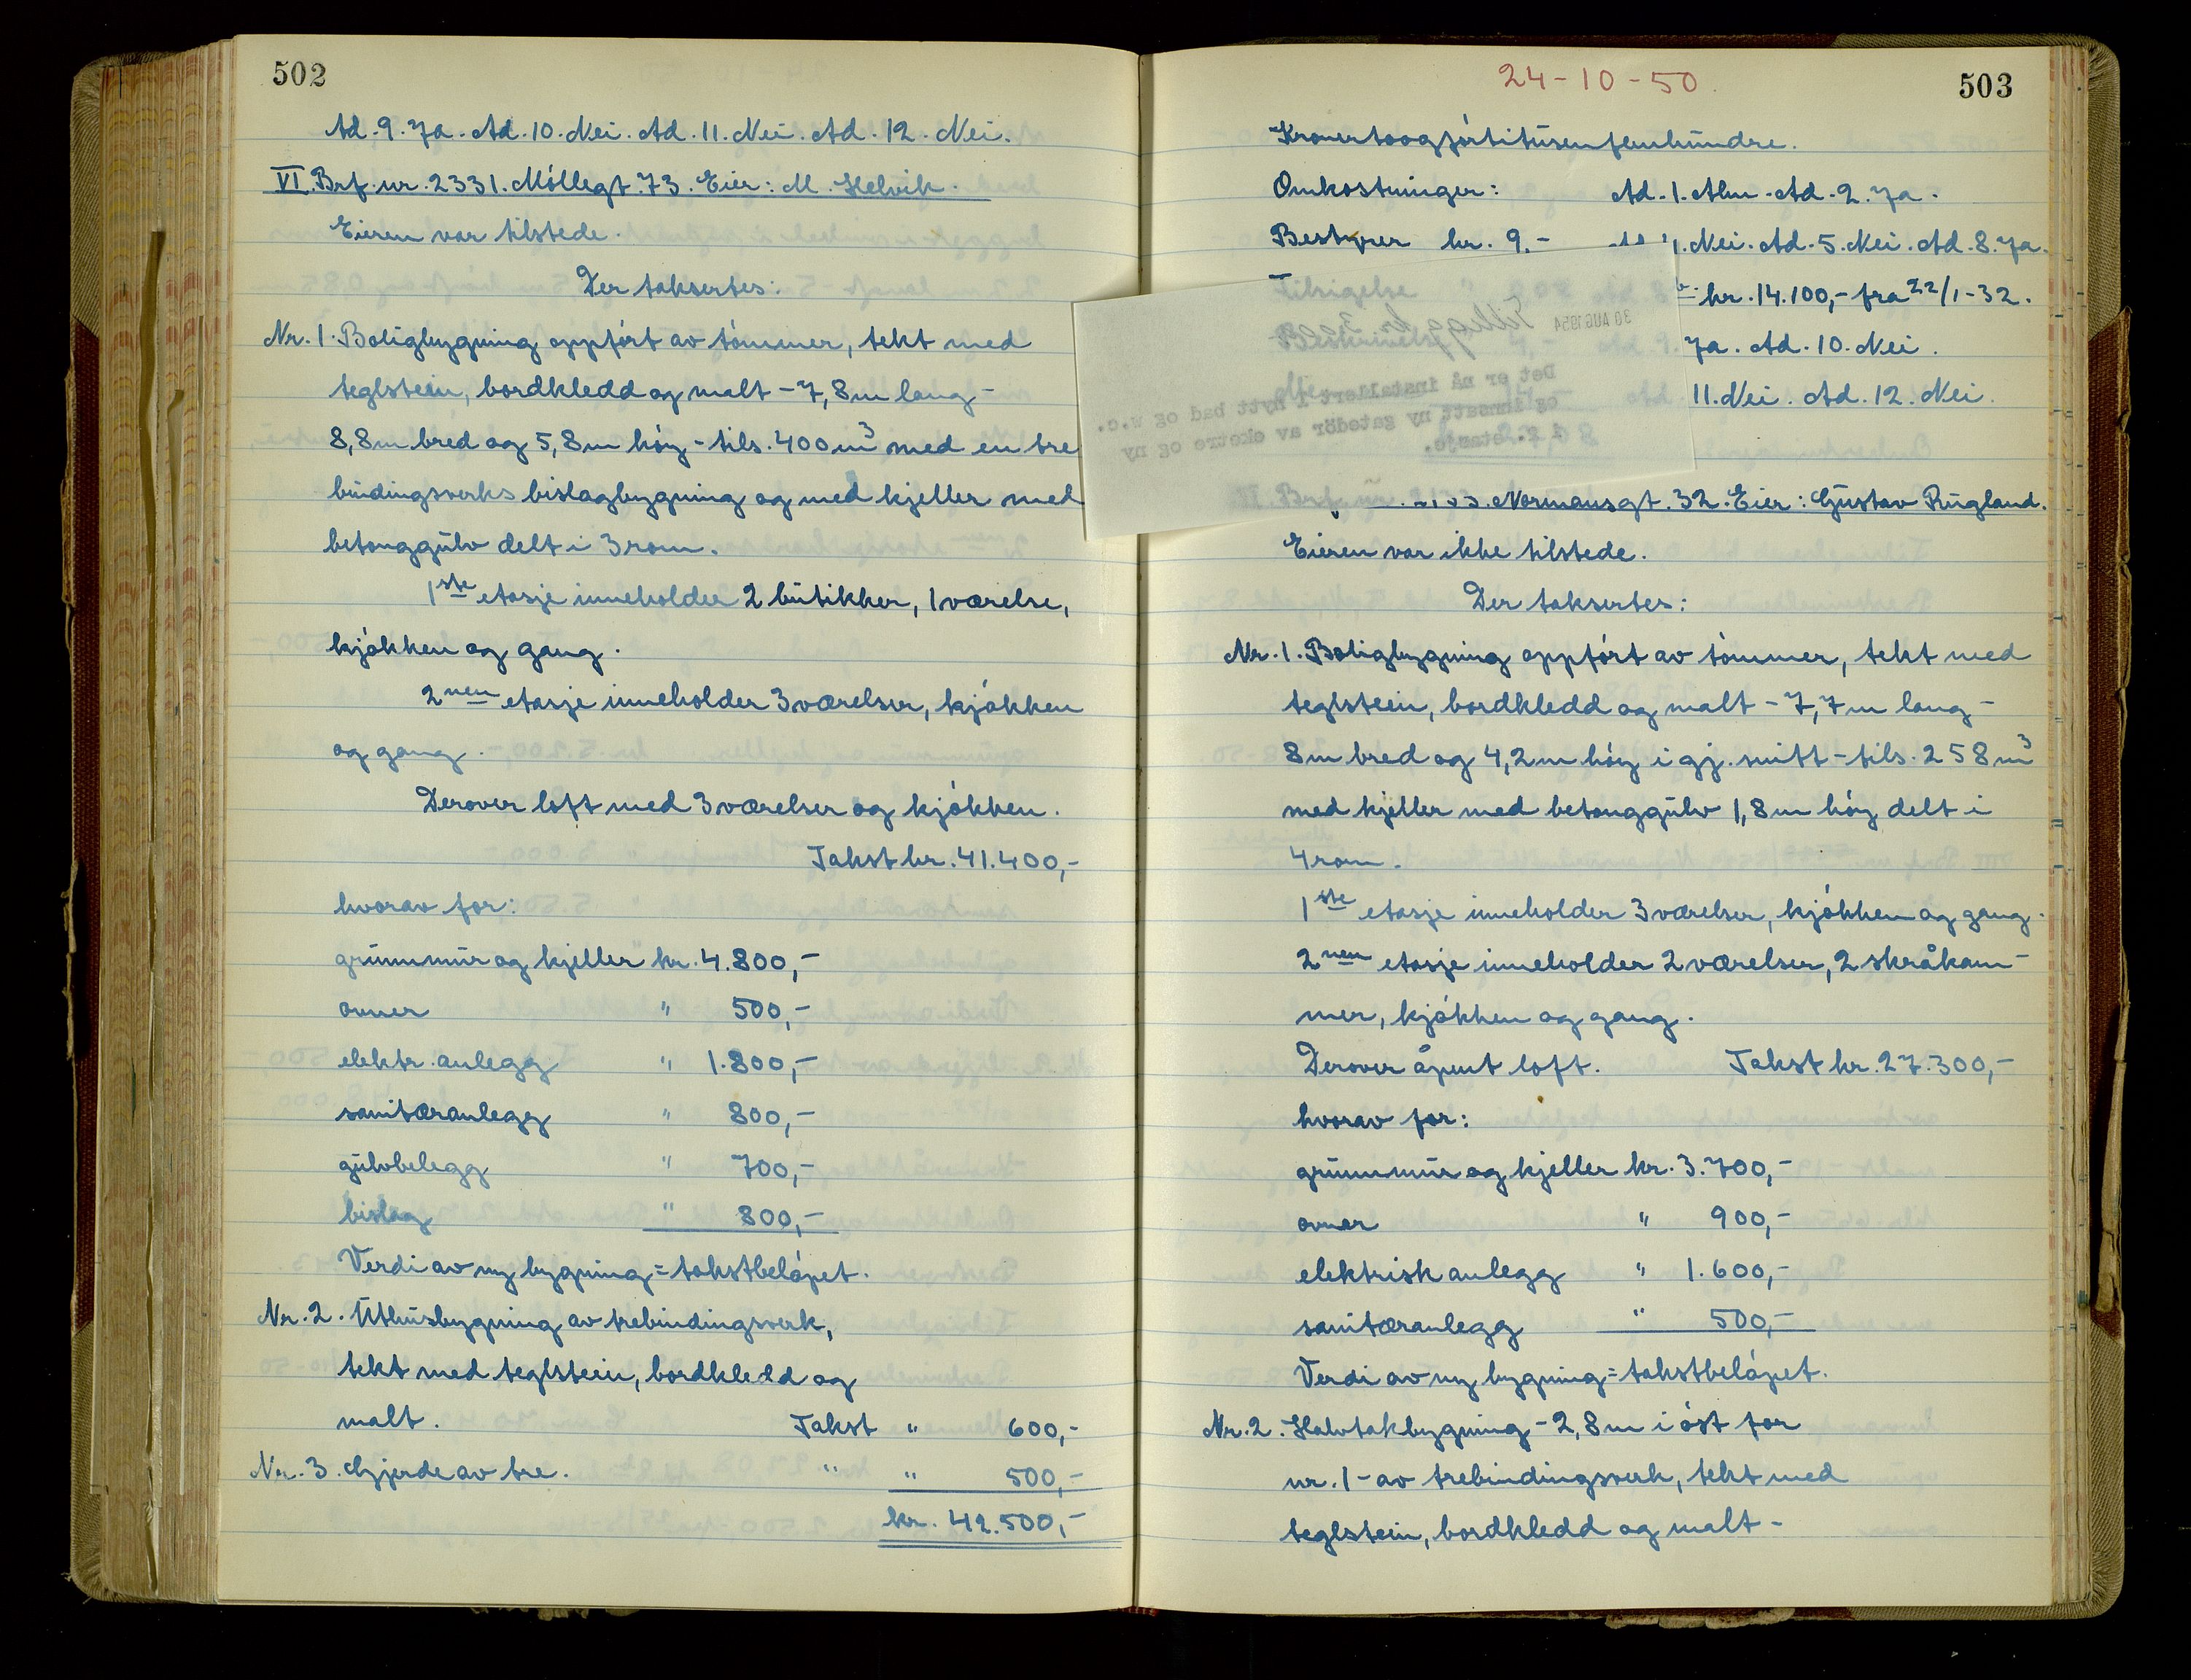 502
Ad. 9. Ja. Ad. 10. Nei. Ad. 11. Nei. Ad. 12. Nei.
VI. Brf. nr. 2331. Möllegt. 73. Eier: M. Helvik.
Eieren var tilstede.
Der taksertes:
Nr. 1. Boligbygning oppfört av tömmer, tekt med
teglstein, bordkledd og malt - 7,8 m lang -
8,8 m bred og 5,8 m höy - tils. 400 m³ med en tre
bindingsverks bislagbygning og med kjeller med
betonggulv delt i 3 rom.
1ste etasje inneholder 2 butikker, 1 værelse,
kjökken og gang.
2nen etasje inneholder 3 værelser, kjökken
og gang.
Derover loft med 3 værelser og kjökken.
Takst kr. 41.400,-
hvorav for:
grunnmur og kjeller kr. 4.800,-
ovner " 500,-
elektr. anlegg " 1.800,-
sanitæranlegg " 800,-
gulvbelegg " 700,-
bislag " 800,-
Verdi av ny bygning = takstbelöpet.
Nr. 2. Uthusbygning av trebindingsverk,
tekt med teglstein, bordkledd og
malt. Takst " 600,-
Nr. 3. Gjerde av tre. " " 500,-
kr. 42.500,-
24-10-50.
503
Kronertoogförtitusenfemhundre.
Omkostninger: Ad. 1. Alm. Ad. 2. Ja.
Bestyrer kr. 9.- Nei. Ad. 5. Nei. Ad. 8. Ja.
Tilsigelse kr. 14.100,- fra 22/1-32.
30 AUG 1954
Ja. Ad. 10. Nei.
11. Nei. Ad. 12. Nei.
Det er nå installert i nytt bad og w.c.
og innsatt ny gatedör av eketre og ny
i 2. etasje.
Normansgt. 32. Eier: Gustav Rugland.
Eieren var ikke tilstede.
Der taksertes:
Nr. 1. Boligbygning oppfört av tömmer, tekt med
teglstein, bordkledd og malt - 7,7 m lang -
8 m bred og 4,2 m höy i gj. snitt - tils. 258 m³
med kjeller med betonggulv 1,8 m höy delt i
4 rom.
1ste etasje inneholder 3 værelser, kjökken og gang.
2nen etasje inneholder 2 værelser, 2 skråkam-
mer, kjökken og gang.
Derover åpent loft. Takst kr. 27.300,-
hvorav for:
grunnmur og kjeller kr. 3.700,-
ovner " 900,-
elektrisk anlegg " 1.600,-
sanitæranlegg " 500,-
Verdi av ny bygning = takstbelöpet.
Nr. 2. Halvtakbygning - 2,8 m i öst for
nr. 1 - av trebindingsverk, tekt med
teglstein, bordkledd og malt -